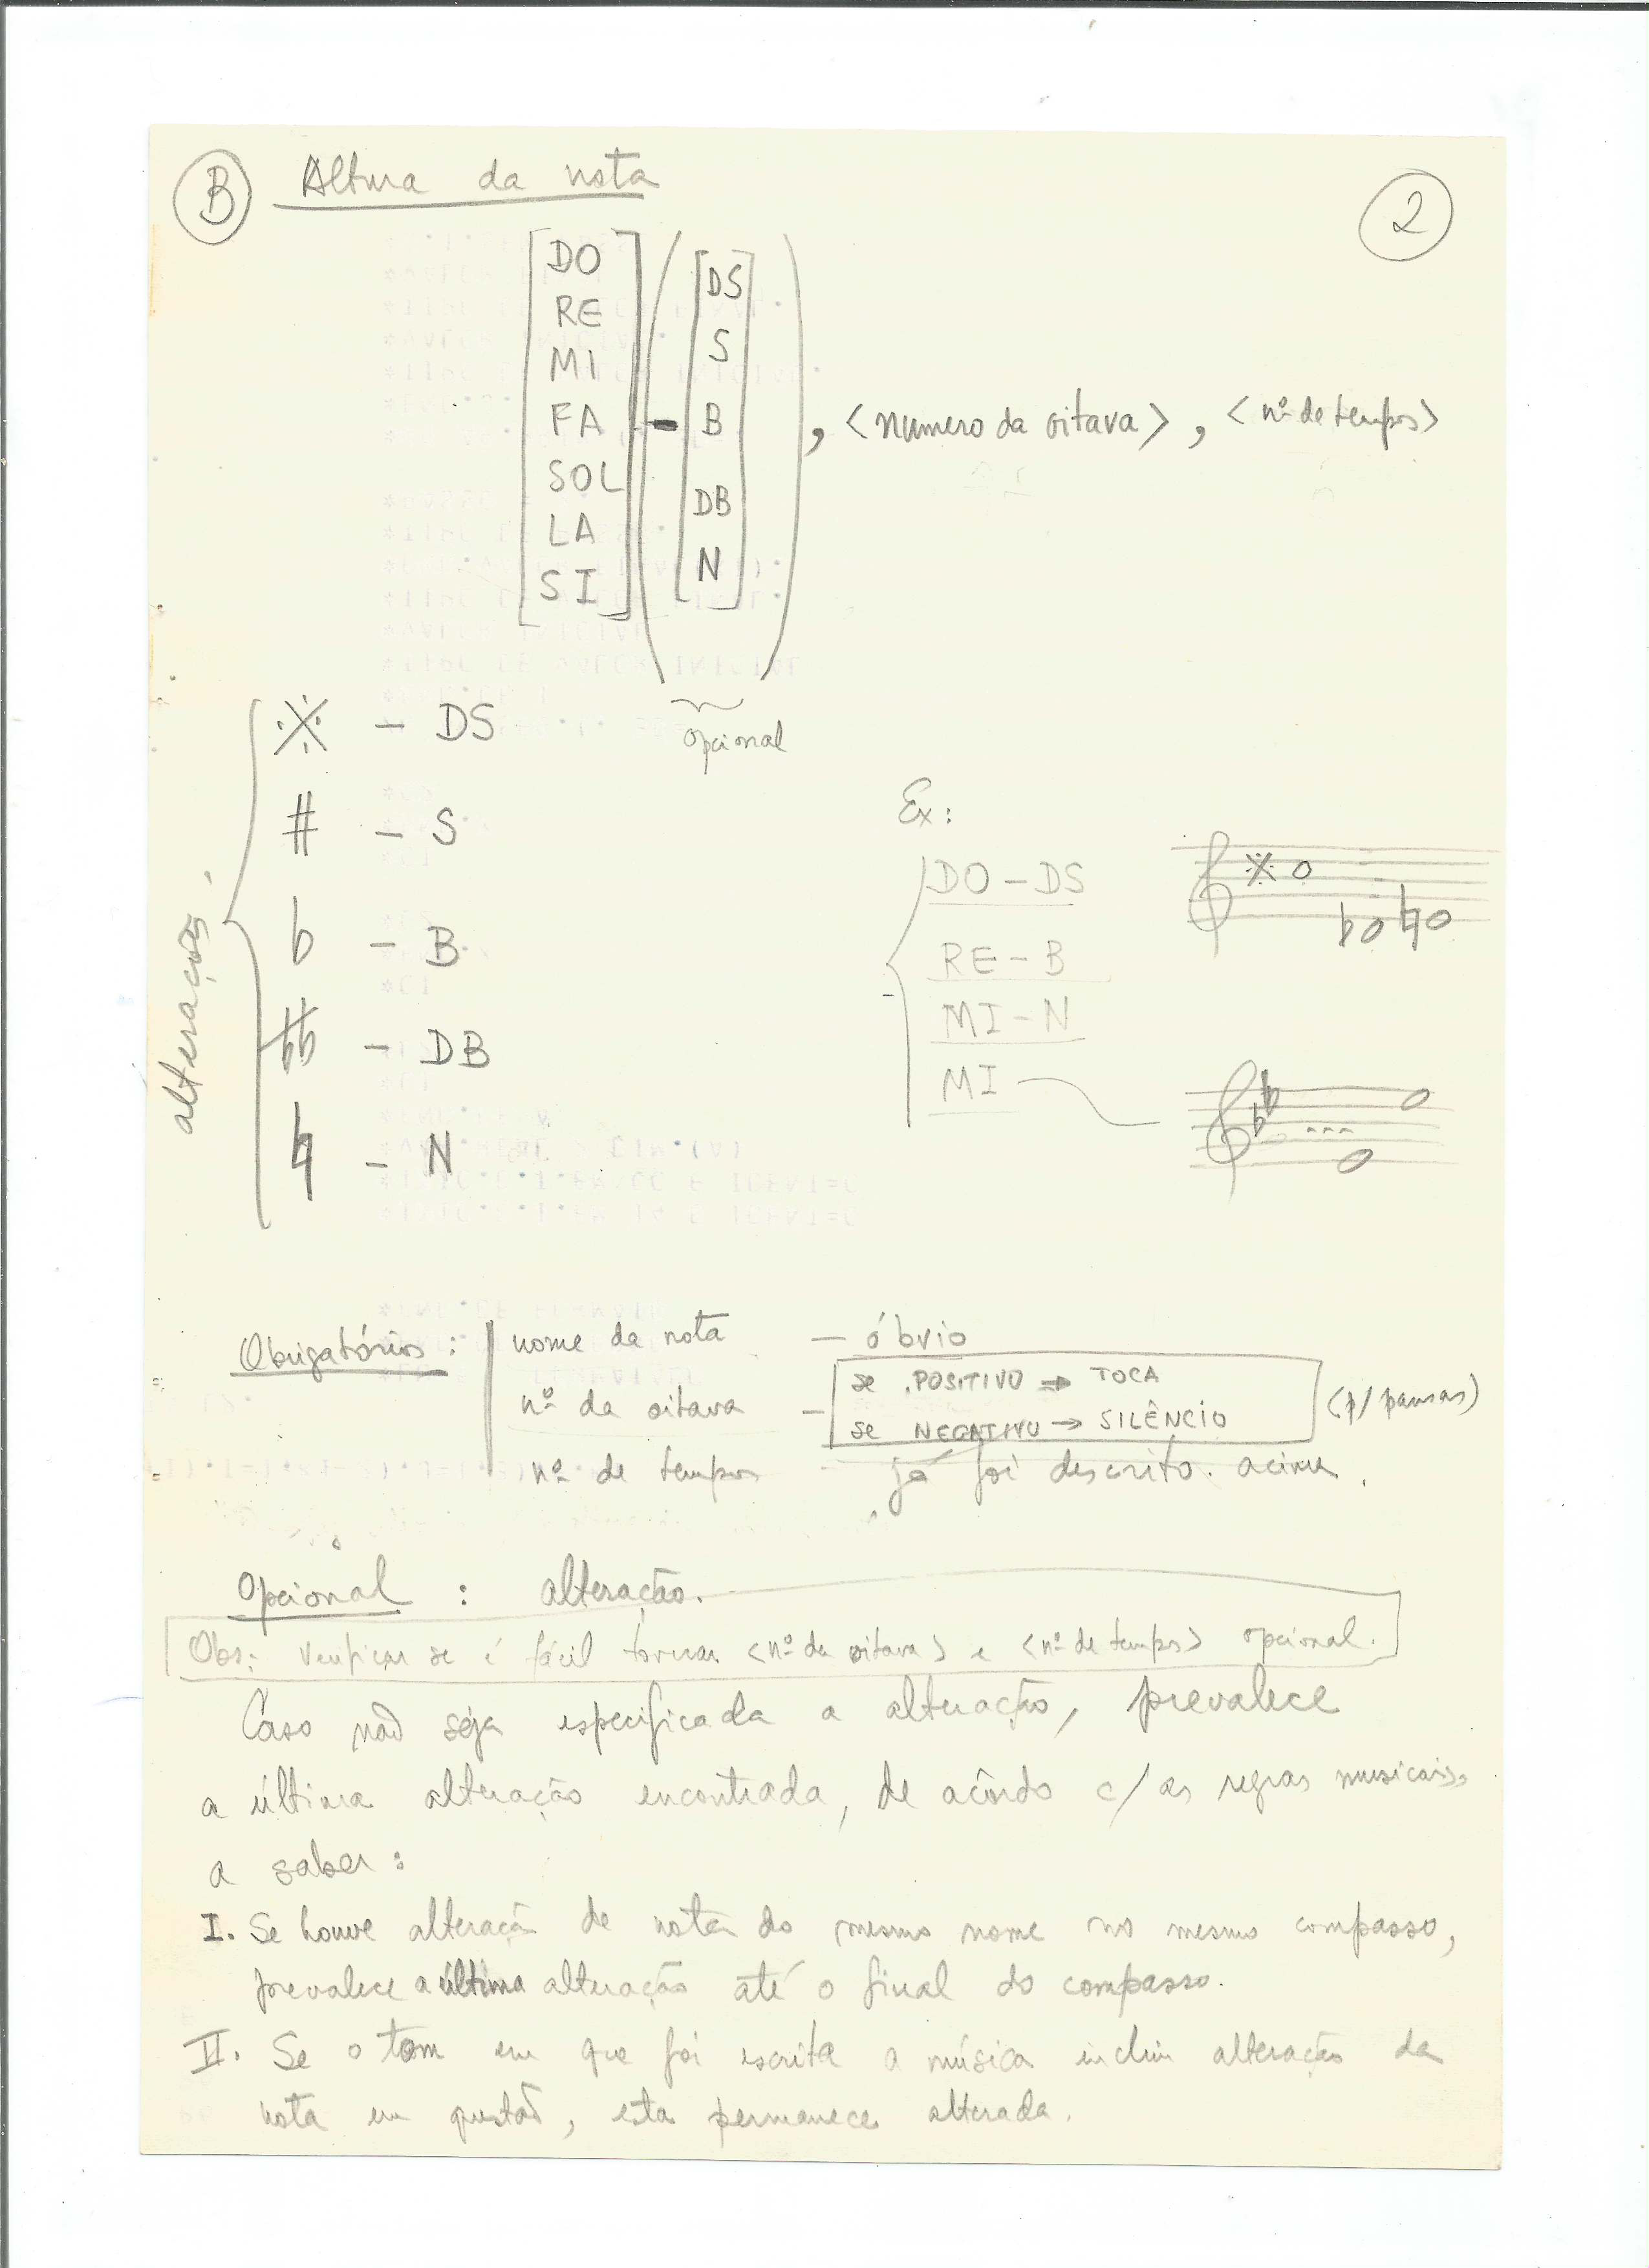 B Altura da nota
2
DO
RE
MI
FA
SOL
LA
SI
-
DS
S
B
DB
N
, <numero da oitava> , <nº de tempos>
opcional
alterações
𝄪 - DS
# - S
♭ - B
♭♭ - DB
♮ - N
Ex:
DO - DS
RE - B
MI - N
MI
...
Obrigatórios : nome da nota - óbvio
nº da oitava - se POSITIVO → TOCA
se NEGATIVO → SILÊNCIO (p/ pausas)
nº de tempos - já foi descrito acima.
Opcional : alteração.
Obs: Verificar se é fácil tornar <nº da oitava> e <nº de tempos> opcional.
Caso não seja especificada a alteração, prevalece
a última alteração encontrada, de acôrdo c/ as regras musicais,
a saber:
I. Se houve alteração de nota do mesmo nome no mesmo compasso,
prevalece a última alteração até o final do compasso.
II. Se o tom em que foi escrita a música inclui alteração da
nota em questão, esta permanece alterada.